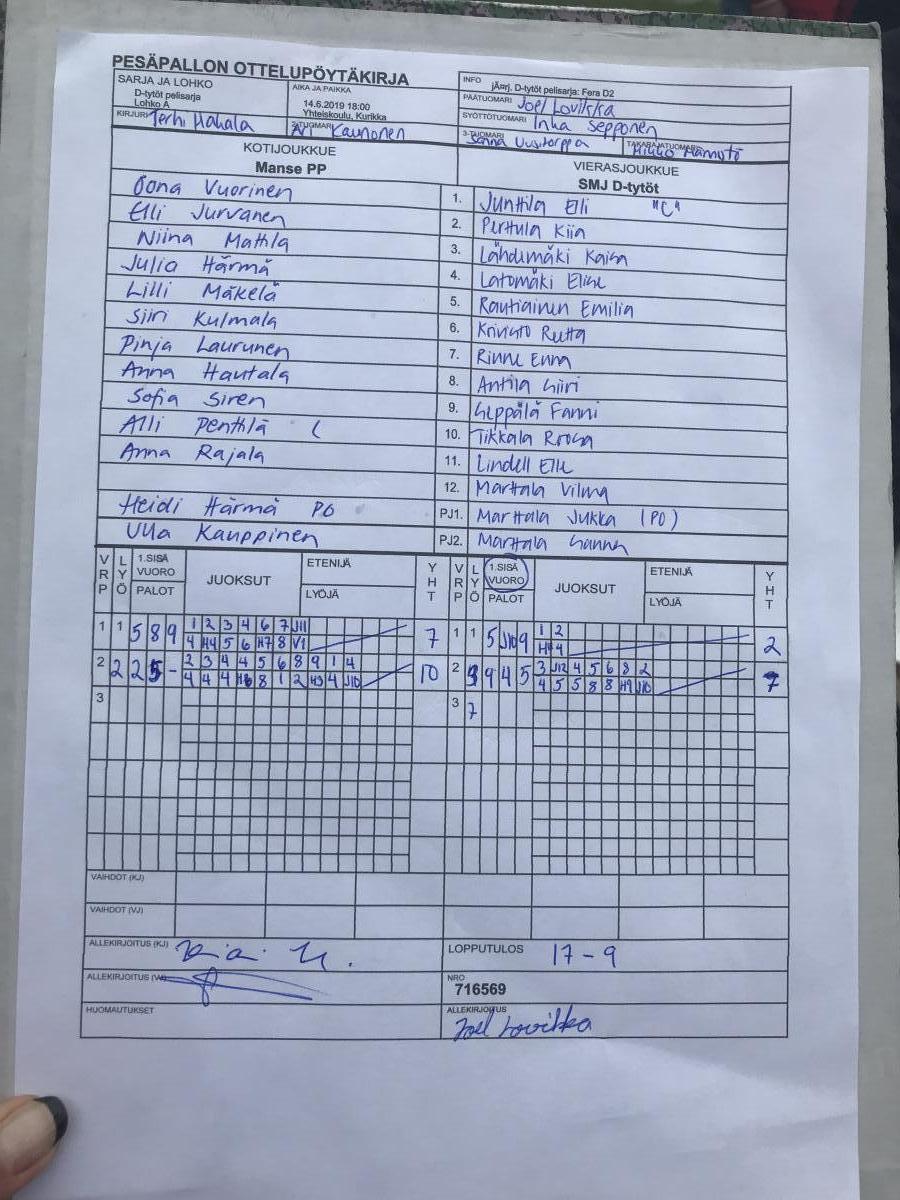 PESÄPALLON OTTELUPÖYTÄKIRJA
SARJA JA LOHKO
D-tytöt pelisarja
Lohko A
AIKA JA PAIKKA
14.6.2019 18:00
Yhteiskoulu, Kurikka
INFO
jÄrrj. D-tytöt pelisarja: Fera D2
PÄÄTUOMARI Joel Lovikka
SYÖTTÖTUOMARI Inka Sepponen
KIRJURI Terhi Mahala
2-TUOMARI Kaunonen
3-TUOMARI Sanna Uusitorppa
TAKARAJATUOMARI Mikko Mamutö
KOTIJOUKKUE
Manse PP
VIERASJOUKKUE
SMJ D-tytöt
Oona Vuorinen 1. Junttila Elli "C"
Elli Jurvanen 2. Perttula Kiia
Niina Mattila 3. Lähdemäki Kaisa
Julia Härmä 4. Latomäki Eline
Lilli Mäkelä 5. Rautiainen Emilia
Siiri Kulmala 6. Reetta
Pinja Laurunen 7. Rinne Enna
Anna Hautala 8. Antila Siiri
Sofia Siren 9. Seppälä Fanni
Alli Penttilä C 10. Tikkala Roosa
Anna Rajala 11. Lindell Elle
12. Marttala Vilma
Heidi Härmä PO PJ1. Marttala Jukka (PO)
Ulla Kauppinen PJ2. Marttala Sanna
VRP LYÖ 1.SISÄ VUORO PALOT JUOKSUT ETENIJÄ LYÖJÄ YHT
VRP LYÖ 1.SISÄ VUORO PALOT JUOKSUT ETENIJÄ LYÖJÄ YHT
1 1 5 8 9 1 2 3 4 6 7 J11 7
4 H4 5 6 H7 8 V1
1 1 5 J10 9 1 2 2
H4 4
2 2 2 5 - 2 3 4 4 5 6 8 9 1 4 10
4 4 4 H6 8 1 2 H3 4 J10
2 9 9 4 5 3 J12 4 5 6 8 2 7
4 5 5 8 8 H9 J10
3
3 7
VAIHDOT (KJ)
VAIHDOT (VJ)
ALLEKIRJOITUS (KJ)
LOPPUTULOS 17-9
ALLEKIRJOITUS (VJ)
NRO
716569
HUOMAUTUKSET
ALLEKIRJOITUS
Joel Lovikka